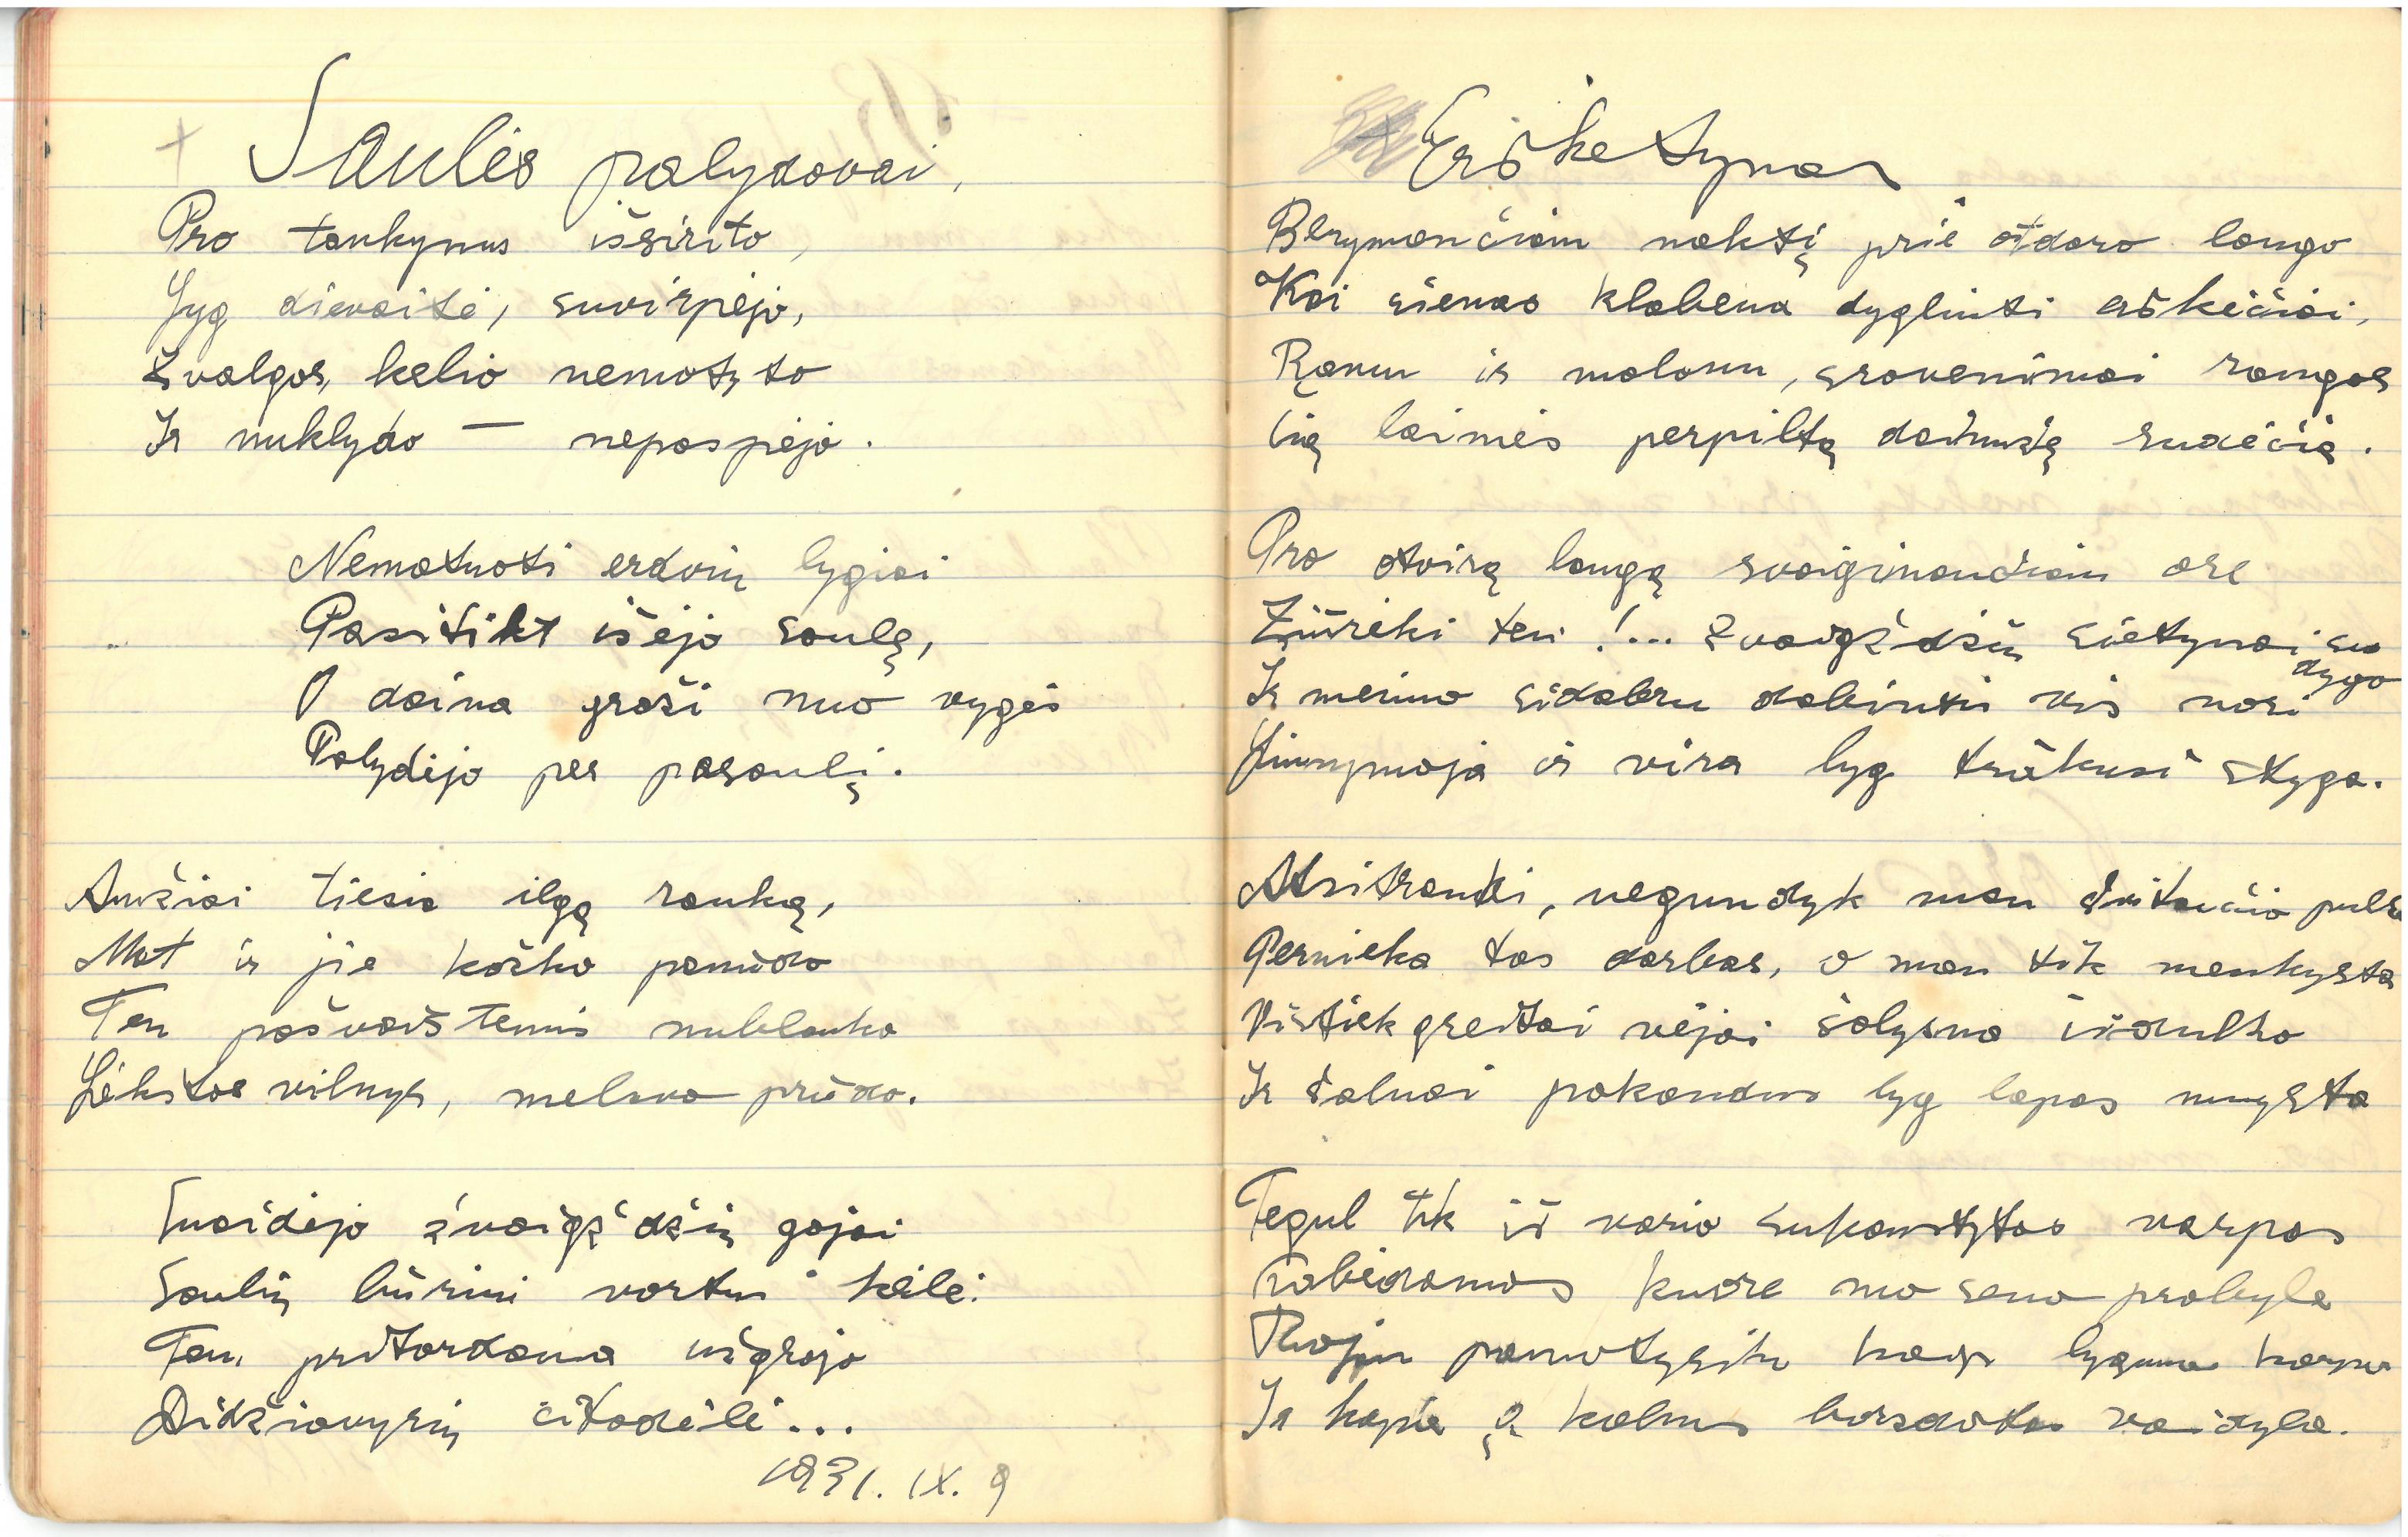 + Saulės palydovai,
Pro tankynus išsirito,
Lyg dievaitė, suvirpėjo,
Žvalgos, kelio nematyto
Ir nuklydo — nepaspėjo.
Nematuoti erdvių lygiai
Pasitikt išėjo saulę,
O daina graži nuo vygės
Palydėjo per pasaulį.
Amžiai tiesia ilgą ranką,
Mat ir jie kažko pamūdo
Ten pašvaistėmis nublanko
Lėkštos vilnys, melsvo prūdo.
Suaidėjo žvaigždžių gojai
Saulių būriui vartus kėlė:
Tam pritardama užgrojo
Didžiavyrių citadėlė...
1931. IX. 9
Erškėtynas
Blrymančiam naktį prie atdaro lango
Kai sienas klabena dygliuti erškėčiai,
Ramu ir malonu, srovenimai rangos
Čią laimės perpiltą dainužę sudėčią.
Pro atvirą langą svaiginančiam ore
Žiūrėki ten!... žvaigždžių sietynai su
dygo
Ir meimo sidabru dabintis vis nori
Linnymoja ir vira lyg trūkusi styga.
Atsitrauki, negundyk man švitančio
Pernieka tas darbas, o man tik menkysta
Vistiek greitai vėjai šalysna išdulko
Ir šalnai pakandus lyg lapas nuvysta
Tegul tik iš vario sukaustytas varpas
kuore nuo seno prabyla
kaip lyguma
Ir kopia į kalnus barzdotas vaidyla.